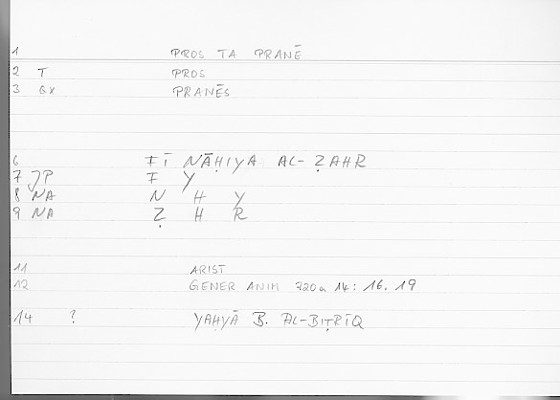 1 PROS TA PRANĒ
2 T PROS
3 GX PRANĒS
6 FĪ NĀḤIYA AL-ẒAHR
7 JP F Y
8 NA N H Y
9 NA Ẓ H R
11 ARIST
12 GENER ANIM 720a 14: 16. 19
14 ? YAḤYĀ B. AL-BIṬRĪQ